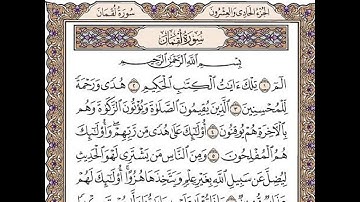 سُورَةُ لُقْمَان
الجُزْءُ الحَادِي وَالعِشْرُونَ
سُورَةُ لُقْمَانَ
بِسْمِ اللَّهِ الرَّحْمَٰنِ الرَّحِيمِ
الٓمٓ ١ تِلْكَ ءَايَٰتُ ٱلْكِتَٰبِ ٱلْحَكِيمِ ٢ هُدًى وَرَحْمَةً
لِّلْمُحْسِنِينَ ٣ ٱلَّذِينَ يُقِيمُونَ ٱلصَّلَوٰةَ وَيُؤْتُونَ ٱلزَّكَوٰةَ وَهُم
بِٱلْءَاخِرَةِ هُمْ يُوقِنُونَ ٤ أُو۟لَٰٓئِكَ عَلَىٰ هُدًى مِّن رَّبِّهِمْ وَأُو۟لَٰٓئِكَ
هُمُ ٱلْمُفْلِحُونَ ٥ وَمِنَ ٱلنَّاسِ مَن يَشْتَرِى لَهْوَ ٱلْحَدِيثِ
لِيُضِلَّ عَن سَبِيلِ ٱللَّهِ بِغَيْرِ عِلْمٍ وَيَتَّخِذَهَا هُزُوًا أُو۟لَٰٓئِكَ لَهُمْ